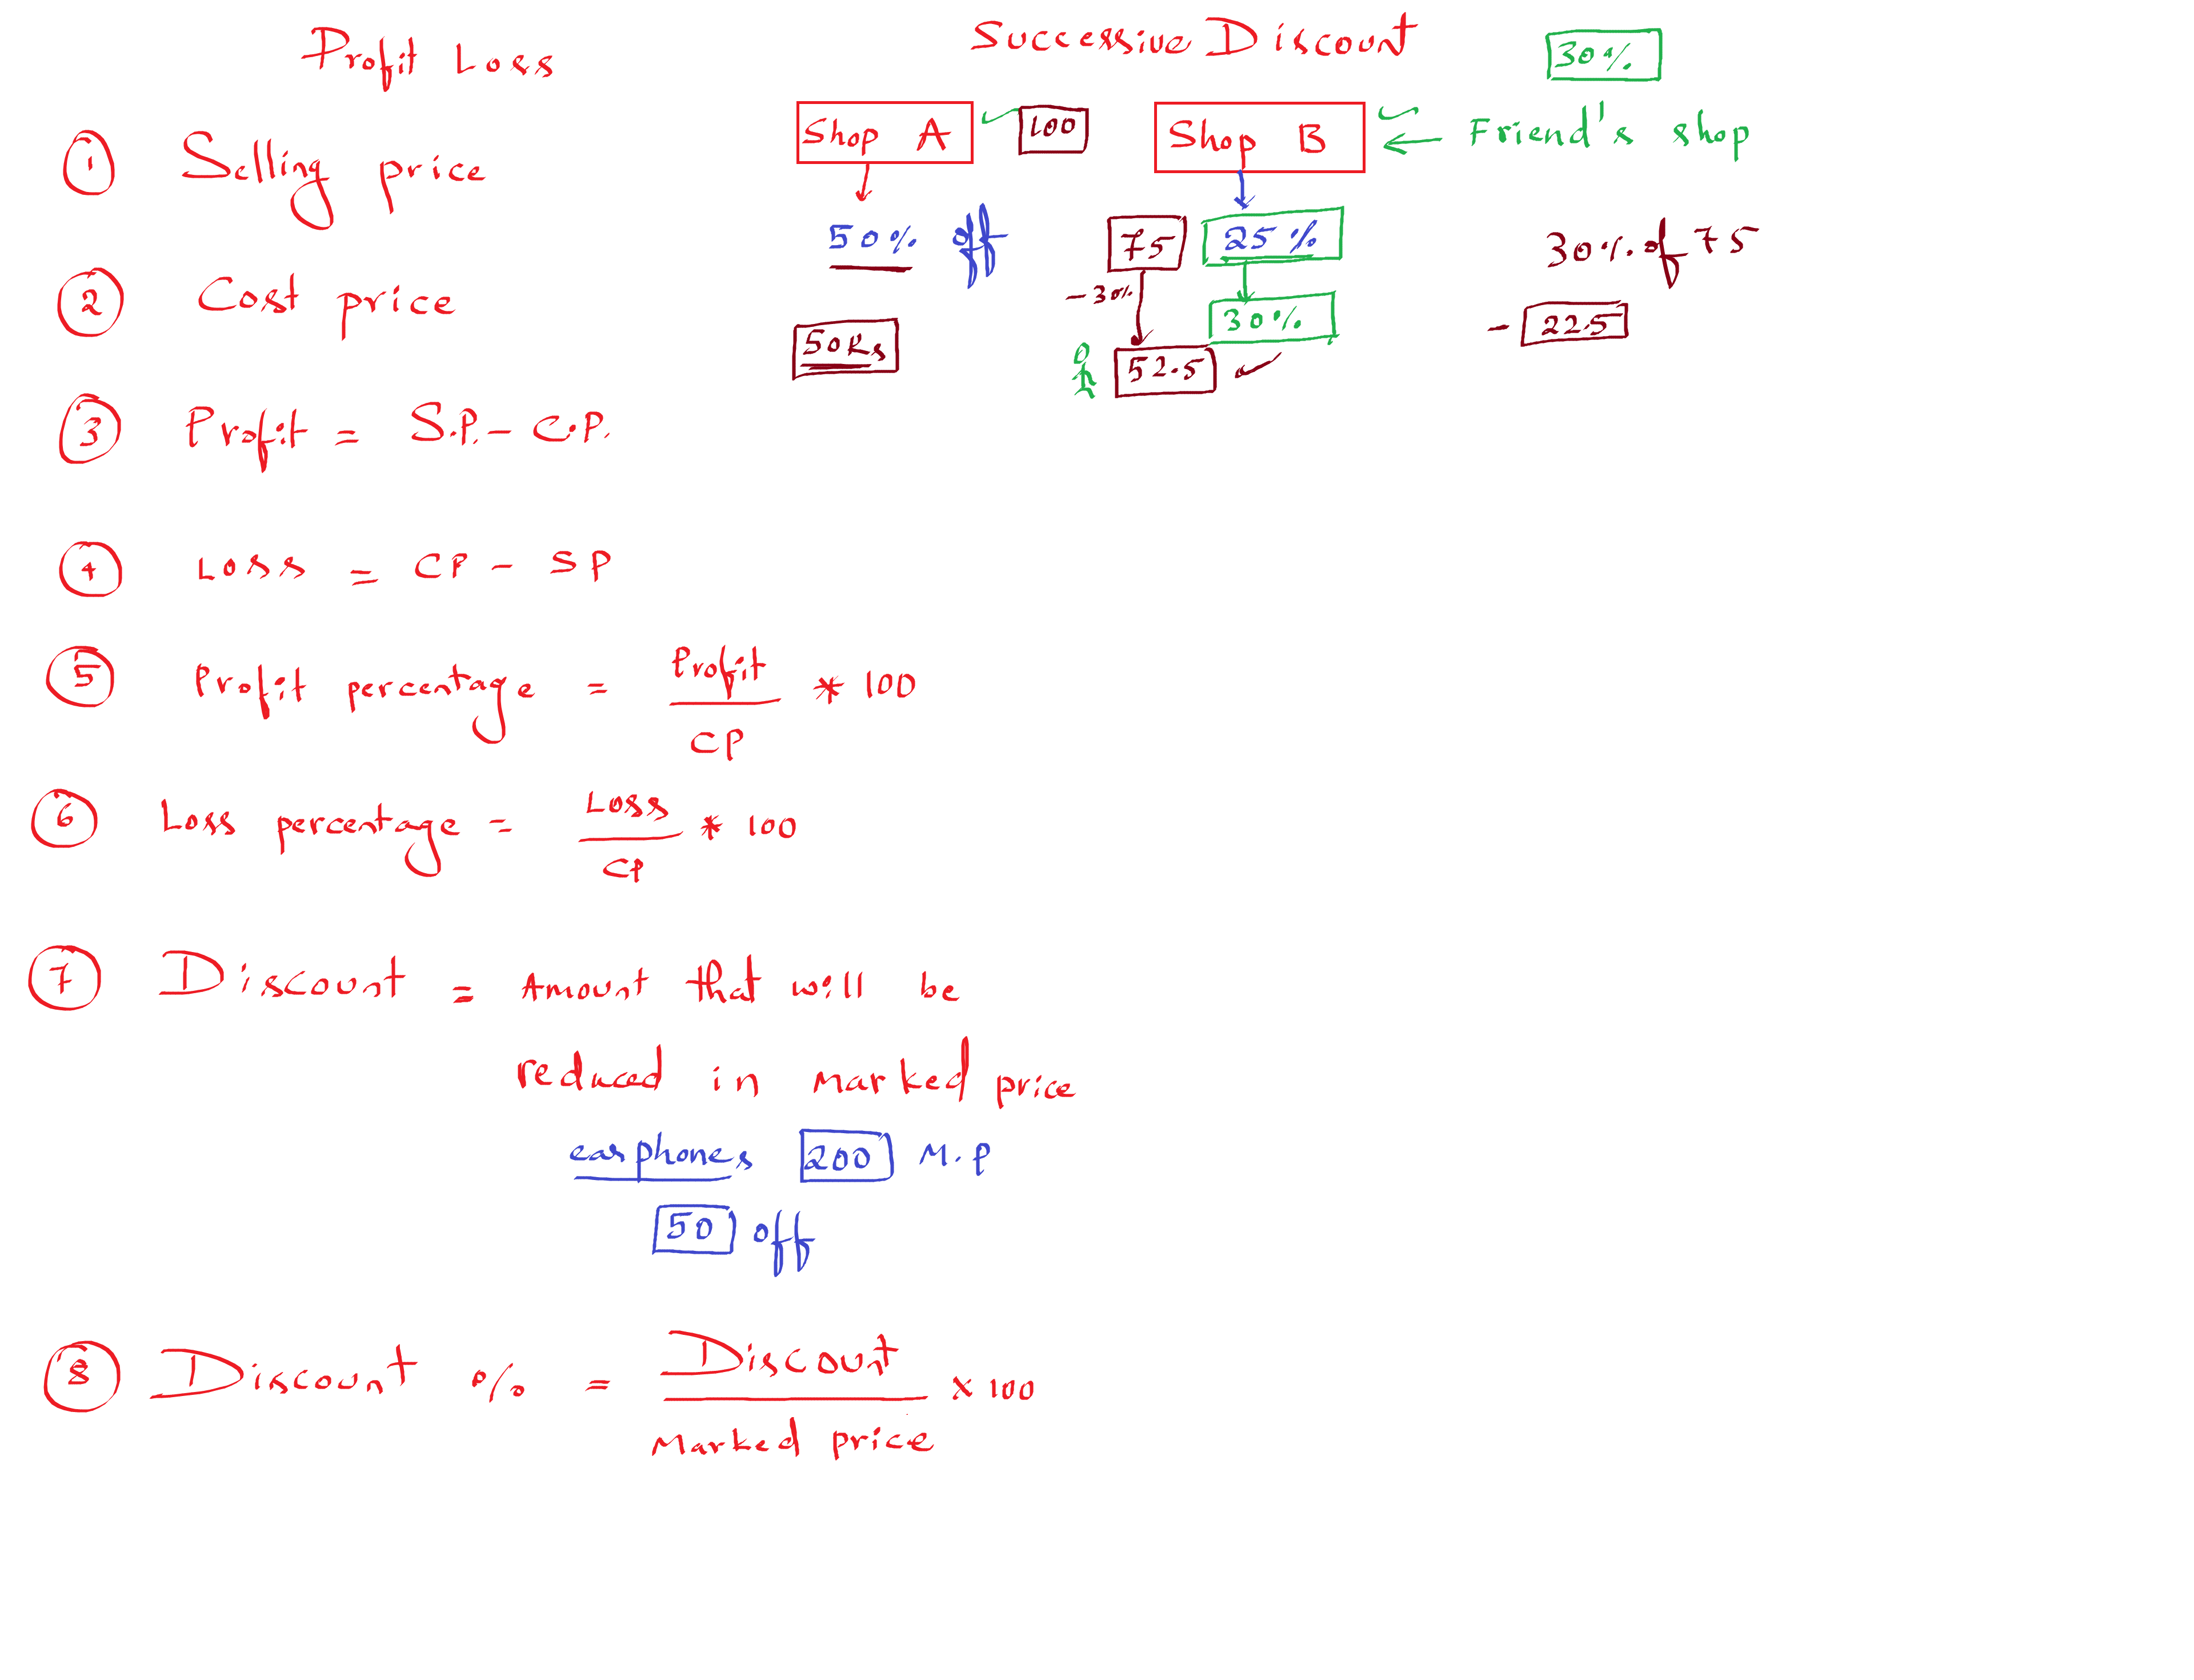 Profit Loss
① Selling price
② Cost price
③ Profit = S.P. - C.P.
④ Loss = CP - SP
⑤ Profit percentage = Profit / CP * 100
⑥ Loss percentage = Loss / CP * 100
⑦ Discount = Amount that will be
reduced in marked price
earphones 200 M.P
50 off
⑧ Discount % = Discount / Marked price × 100
Successive Discount
30%
Shop A
100
Shop B
← Friend's shop
50% off
75
25%
30% of 75
-30%
30%
- 22.5
50Rs
52.5 ✓